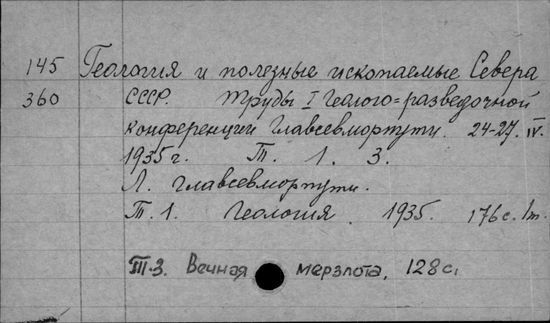 145 Геология и полезные ископаемые Севера
360 СССР. Труды I геолого=разведочной
конференции Главсевморпути. 24-27. IV.
1935 г. Т. 1. 3.
Л. Главсевморпути.
Т. 1. Геология. 1935. 176 с. 1 т.
Т. 3. Вечная мерзлота, 128 с.